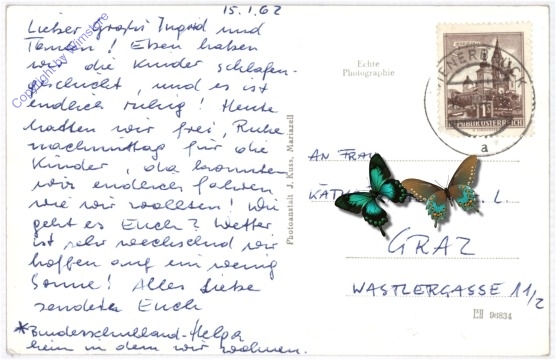 15.1.62
Lieber Großi Ingrid und
Tanten! Eben haben
wir die Kinder schlafen-
geschickt, und es ist
endlich ruhig! Heute
hatten wir frei, Ruhe
nachmittag für die
Kinder, da konnten
wir endlich fahren
wie wir wollten! Wie
geht es Euch? Wetter
ist sehr wechselnd wir
hoffen auf ein wenig
Sonne! Alles Liebe
sendet Euch
*Bundesschulland-Helga
heim in dem wir wohnen.
Copyright by Wimstore
Echte
Photographie
Photoanstalt J. Kuss, Mariazell
REPUBLIK ÖSTERREICH
a
AN FRAU
L.
GRAZ
WASTLERGASSE 11/2
94834